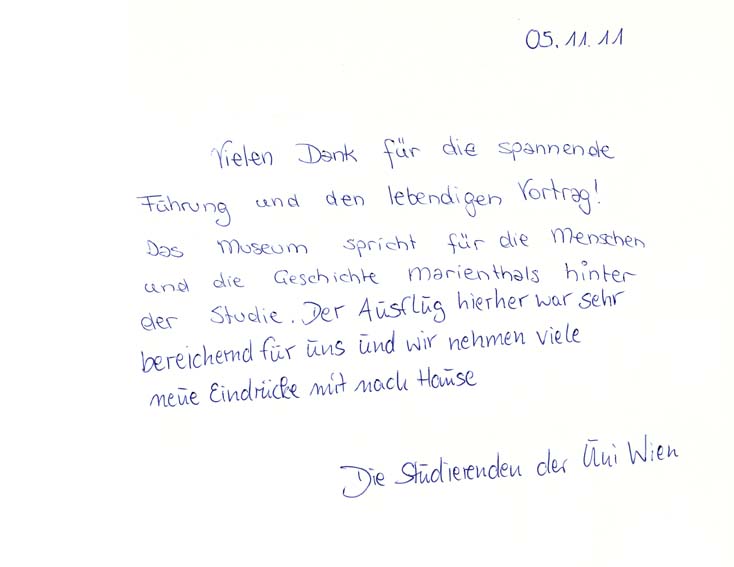 05.11.11
Vielen Dank für die spannende
Führung und den lebendigen Vortrag!
Das Museum spricht für die Menschen
und die Geschichte Marienthals hinter
der Studie. Der Ausflug hierher war sehr
bereichernd für uns und wir nehmen viele
neue Eindrücke mit nach Hause
Die Studierenden der Uni Wien